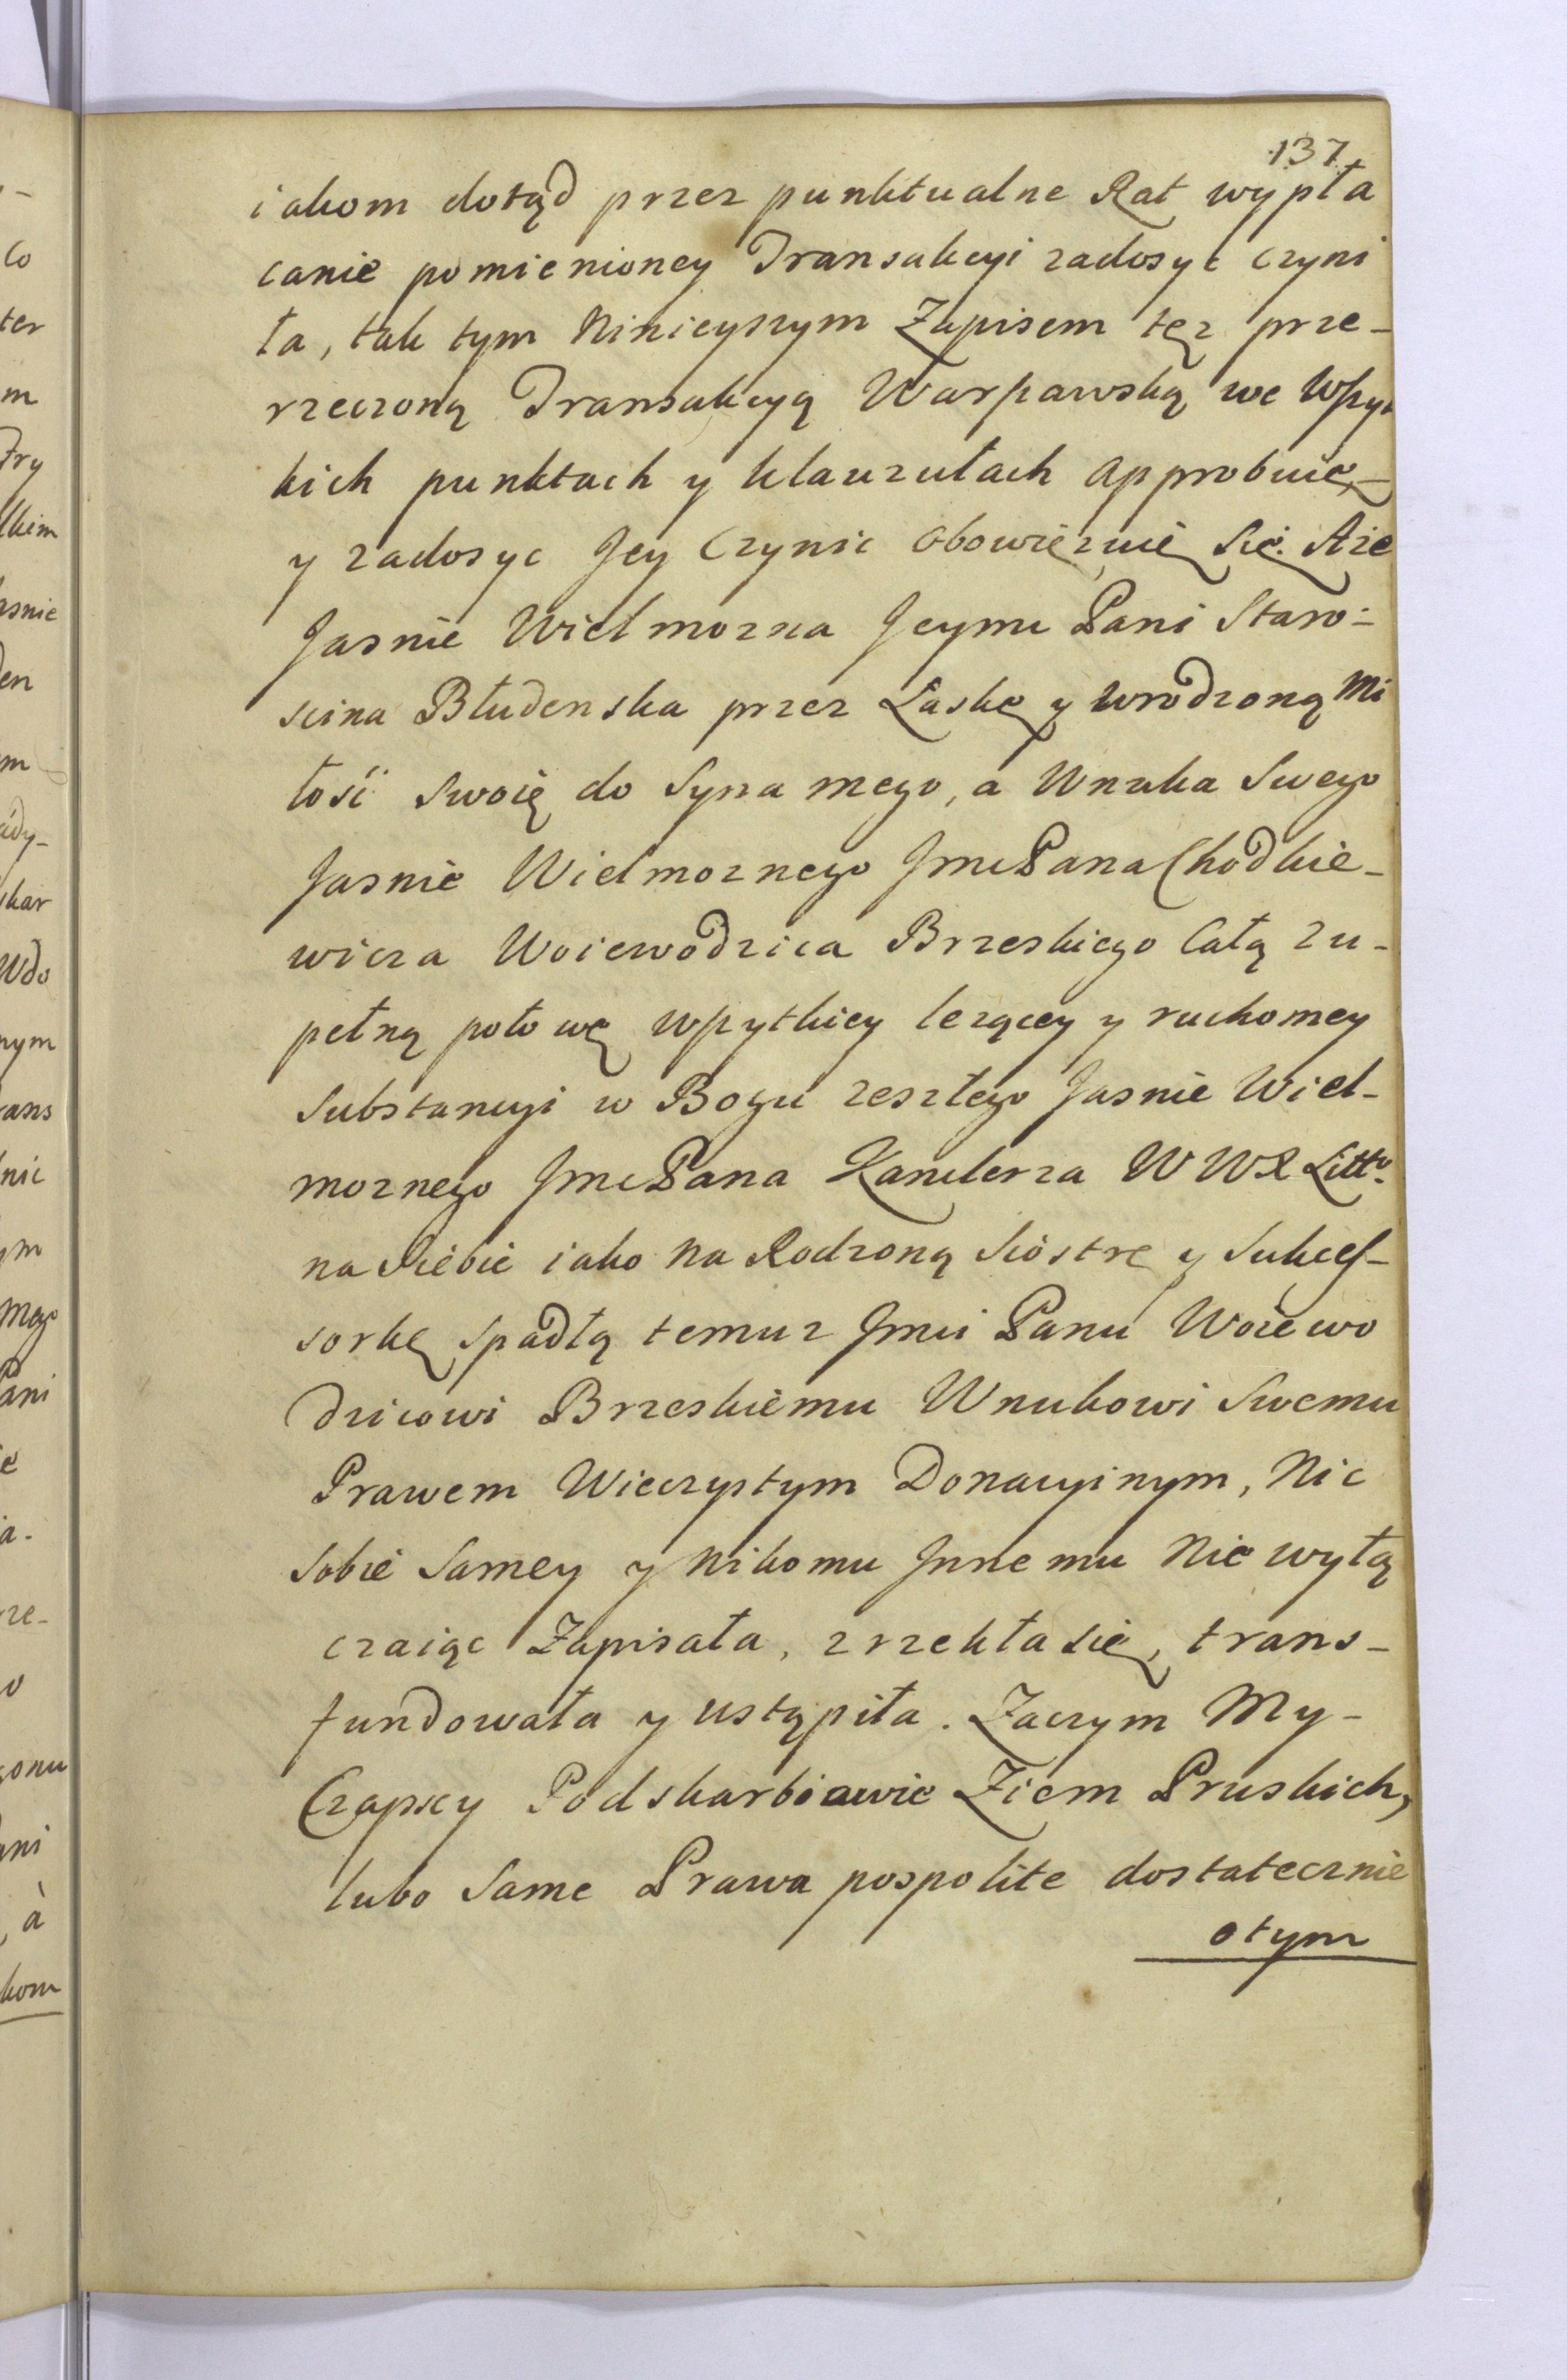 137
iakom dotąd przez punktualne Rat wypła
canie pomienioney Transakcyi zadosyc czyni
ła, tak tym Ninieyszym Zapisem tęz prze-
rzeczoną Transakcyą Warszawską we Wszyt
kich punktach y klauzułach approbuię,
y zadosyc Jey Czynic obowięzuię Się. Aze
Jasnie Wielmozna Jeymc Pani Staro-
scina Błudenska przez Łaskę y wrodzoną Mi
łość Swoię do Syna mego, a Wnuka Swego
Jasnie Wielmoznego JmcPana Chodkie-
wicza Woiewodzica Brzeskiego Całą zu-
pełną połowę wszytkiey lezącey y ruchomey
Substancyi w Bogu zeszłego Jasnie Wiel-
moznego JmcPana Kanclerza W W X Litto.
na Siebie iako na Rodzoną Siostrę y Sukces-
sorkę spadłą temuz Jmci Panu Woiewo
dzicowi Brzeskiemu Wnukowi Swemu
Prawem Wieczystym Donacyinym, Nic
Sobie Samey y Nikomu Jnnemu Nie wyłą
czaiąc Zapisała, zrzekła się, trans-
fundowała y ustąpiła. Zaczym My-
Czapscy Podskarbiawie Ziem Pruskich,
lubo Same Prawa pospolite dostatecznie
otym